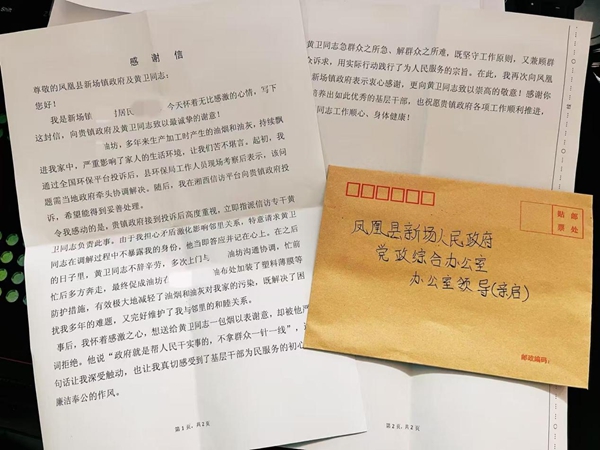 感 谢 信
尊敬的凤凰县新场镇政府及黄卫同志：
您好！
我是新场镇 村居民 今天怀着无比感激的心情，写下
这封信，向贵镇政府及黄卫同志致以最诚挚的谢意！
油坊，多年来生产加工时产生的油烟和油灰，持续飘
进我家中，严重影响了家人的生活环境，让我们苦不堪言，起初，我
通过全国环保平台投诉后，县环保局工作人员现场考察后表示，该问
题需当地政府牵头协调解决。随后，我在湘西信访平台向贵镇政府投
诉，希望能得到妥善处理。
令我感动的是，贵镇政府接到投诉后高度重视，立即指派信访专干黄
卫同志负责此事。由于我担心矛盾激化影响邻里关系，特意请求黄卫
同志在调解过程中不暴露我的身份，他当即答应并记在心上。在之后
的日子里，黄卫同志不辞辛劳，多次上门与 油坊沟通协调，忙前
忙后多方奔走，最终促成油坊 油布处加装了塑料薄膜等
防护措施，有效极大地减轻了油烟和油灰对我家的污染，既解决了困
扰我多年的难题，又完好维护了我与邻里的和睦关系。
事后，我怀着感激之心，想送给黄卫同志一包烟以表谢意，却被他严
词拒绝。他说“政府就是帮人民干实事的，不拿群众一针一线”，这
句话让我深受触动，也让我真切感受到了基层干部为民服务的初心
廉洁奉公的作风。
第 1 页，共 2 页
黄卫同志急群众之所急、解群众之所难，既坚守工作原则，又兼顾群
众诉求，用实际行动践行了为人民服务的宗旨。在此，我再次向凤凰
新场镇政府表示衷心感谢，更向黄卫同志致以崇高的敬意！感谢你
培养出如此优秀的基层干部，也祝愿贵镇政府各项工作顺利推进，
同志工作顺心、身体健康！
第 2 页，共 2 页
贴 邮
票 处
凤凰县新场人民政府
党政综合办公室
办公室领导(亲启)
邮政编码：